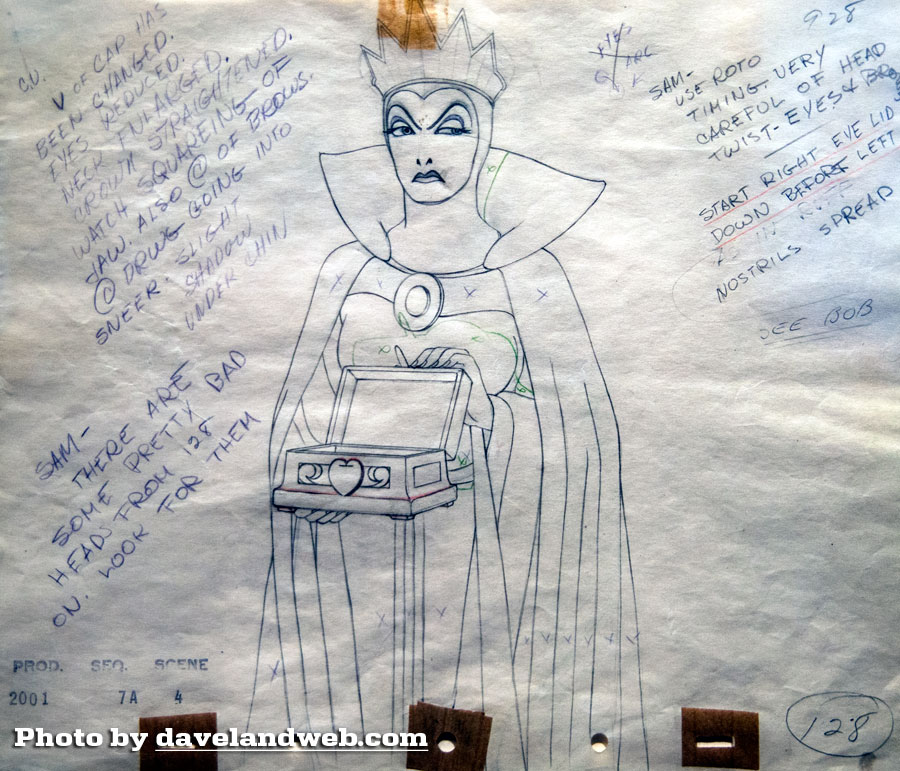 C.U.
V OF CAP HAS
BEEN CHANGED.
EYES REDUCED.
NECK ENLARGED.
CROWN STRAIGHTENED.
WATCH SQUAREING OF
JAW. ALSO @ OF BROWS.
@ DRWG GOING INTO
SNEER. SLIGHT
SHADOW
UNDER CHIN
SAM-
THERE ARE
SOME PRETTY BAD
HEADS FROM 128
ON. LOOK FOR THEM
EYES
ARC
928
SAM-
USE ROTO
TIMING. VERY
CAREFUL OF HEAD
TWIST- EYES &
START RIGHT EYE LID
DOWN BEFORE LEFT
AS IN ROTO
NOSTRILS SPREAD
SEE BOB
PROD. SEQ. SCENE
2001 7A 4
128
Photo by davelandweb.com